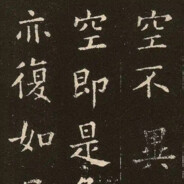 空不異
空即是
亦復如